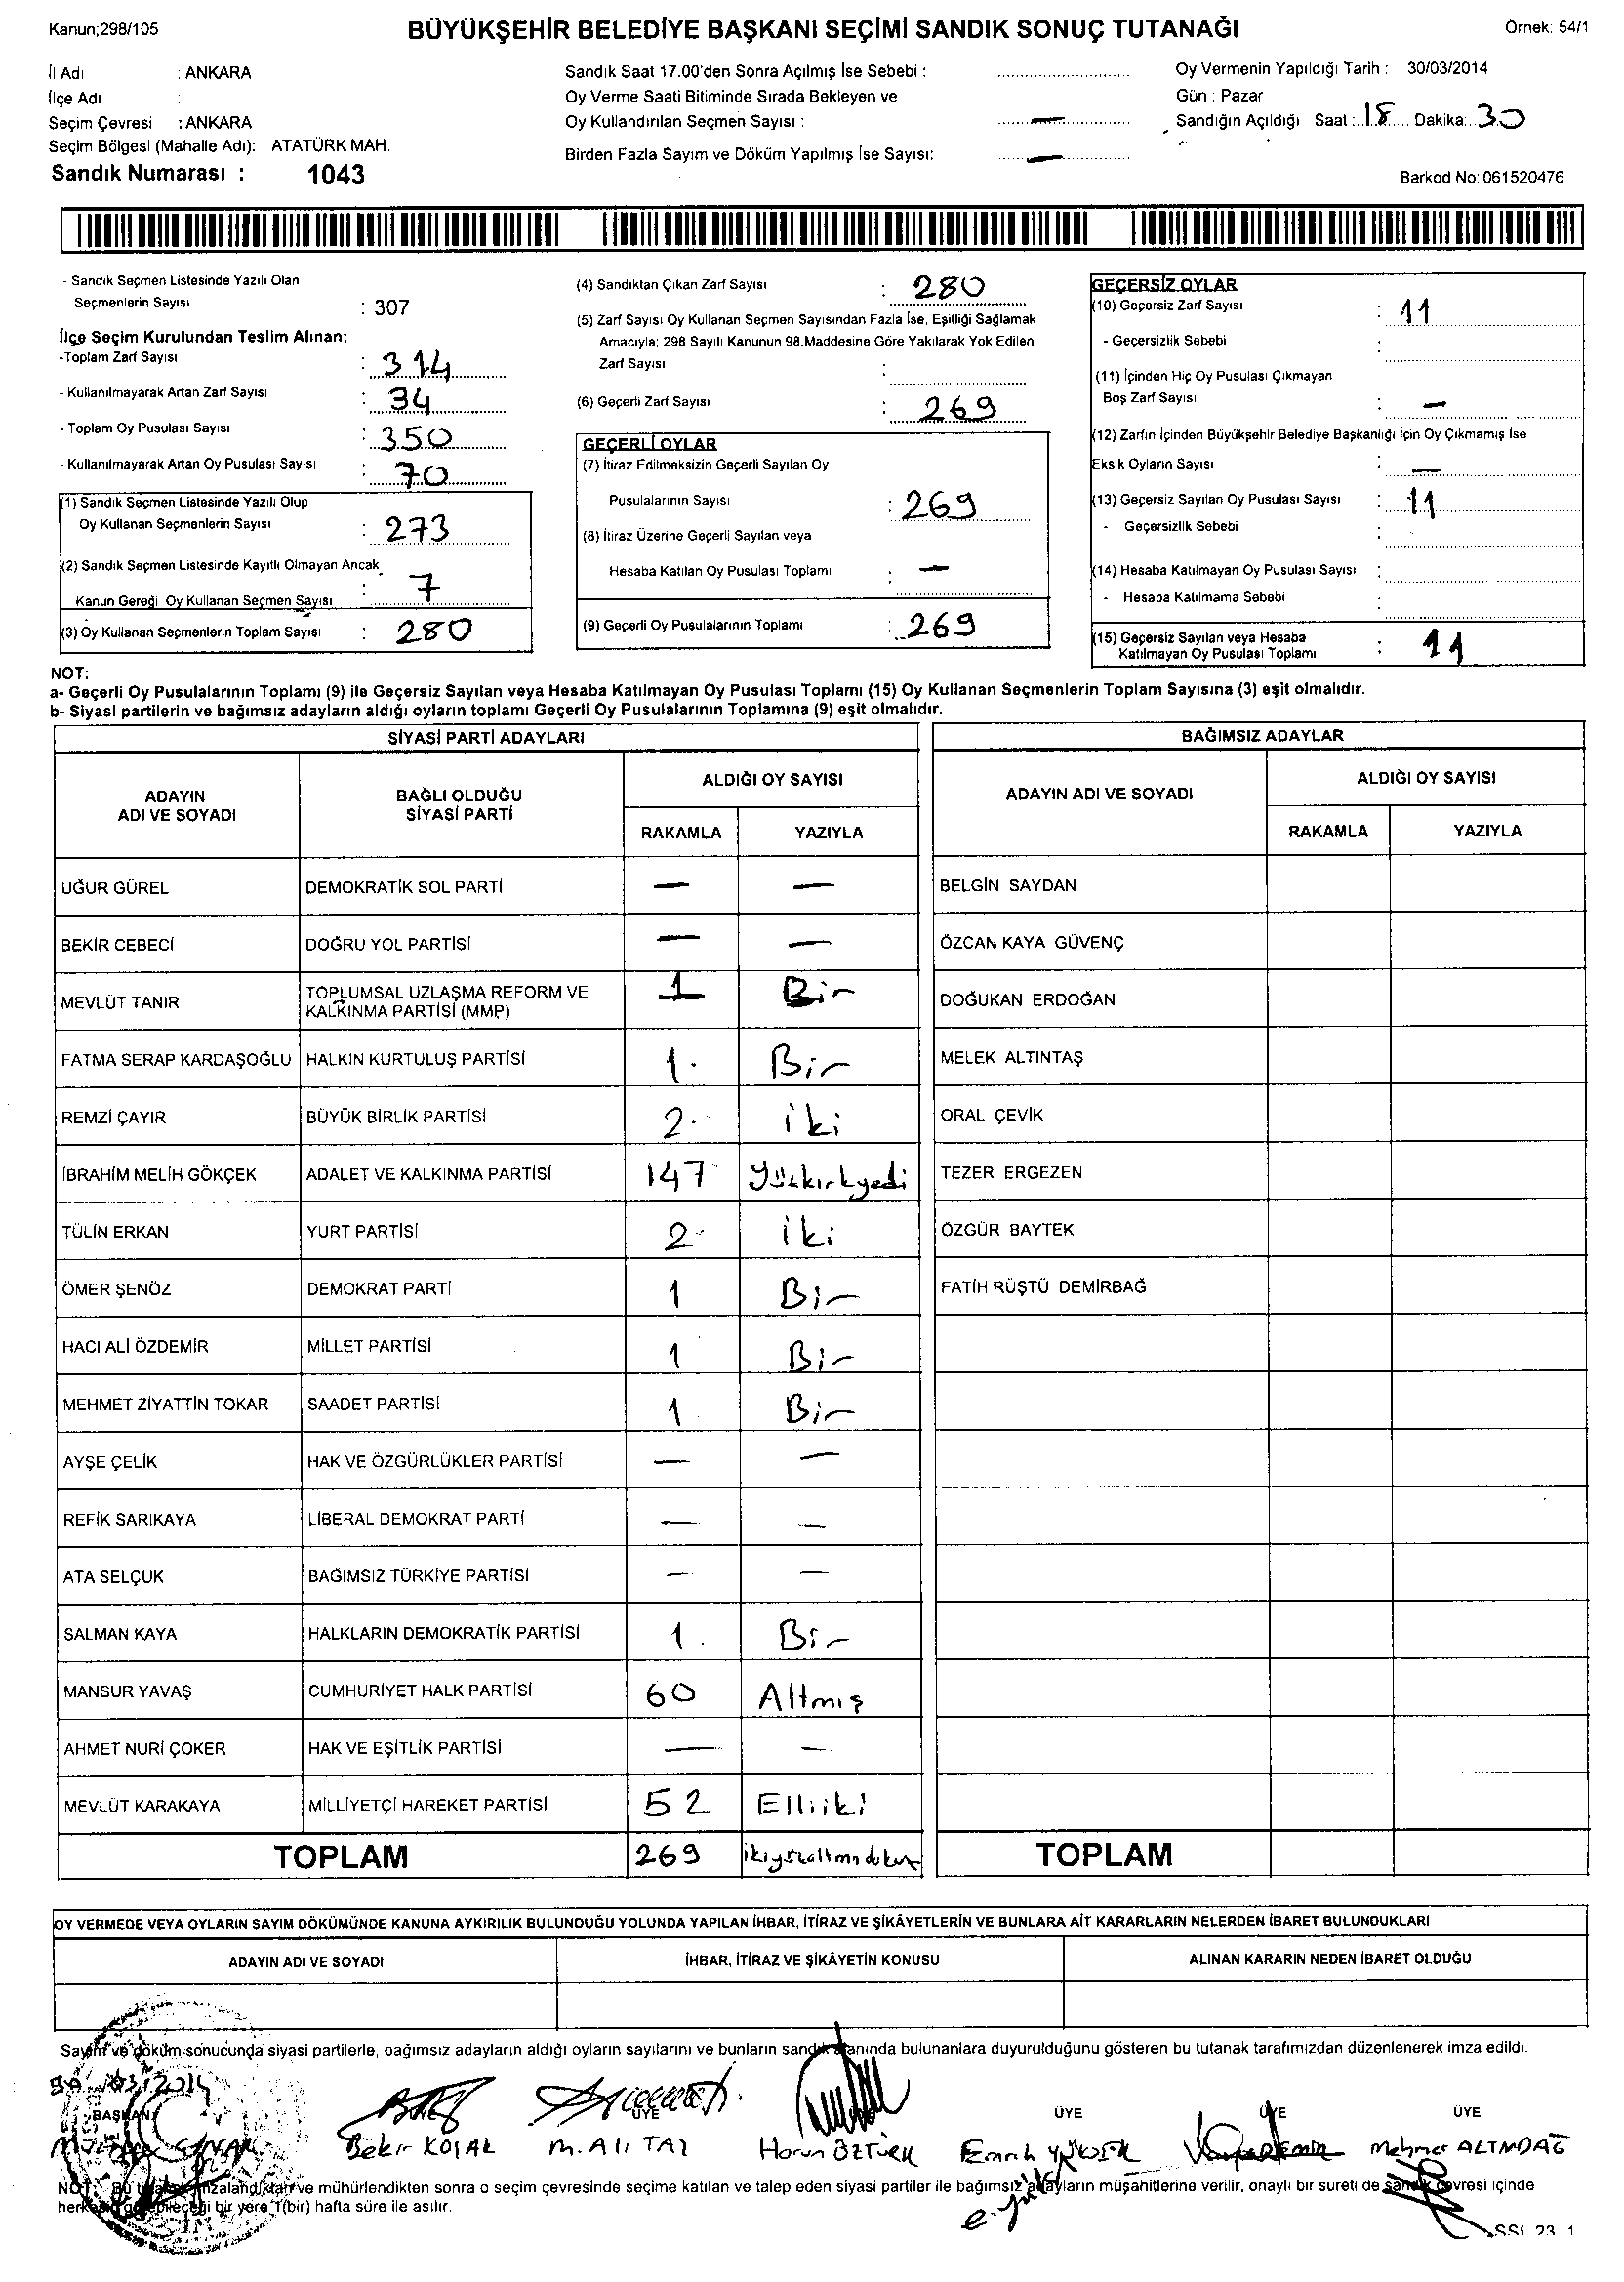 Kanun;298/105
BÜYÜKŞEHİR BELEDİYE BAŞKANI SEÇİMİ SANDIK SONUÇ TUTANAĞI
Örnek: 54/1
İl Adı : ANKARA
İlçe Adı :
Seçim Çevresi : ANKARA
Seçim Bölgesi (Mahalle Adı): ATATÜRK MAH.
Sandık Numarası : 1043
Sandık Saat 17.00'den Sonra Açılmış İse Sebebi :
Oy Verme Saati Bitiminde Sırada Bekleyen ve
Oy Kullandırılan Seçmen Sayısı : —
Birden Fazla Sayım ve Döküm Yapılmış İse Sayısı: —
Oy Vermenin Yapıldığı Tarih : 30/03/2014
Gün : Pazar
Sandığın Açıldığı Saat : 18 Dakika: 30
Barkod No: 061520476
- Sandık Seçmen Listesinde Yazılı Olan
Seçmenlerin Sayısı : 307
İlçe Seçim Kurulundan Teslim Alınan;
-Toplam Zarf Sayısı : 314
- Kullanılmayarak Artan Zarf Sayısı : 34
- Toplam Oy Pusulası Sayısı : 350
- Kullanılmayarak Artan Oy Pusulası Sayısı : 70
(1) Sandık Seçmen Listesinde Yazılı Olup
Oy Kullanan Seçmenlerin Sayısı : 273
(2) Sandık Seçmen Listesinde Kayıtlı Olmayan Ancak
Kanun Gereği Oy Kullanan Seçmen Sayısı : 7
(3) Oy Kullanan Seçmenlerin Toplam Sayısı : 280
(4) Sandıktan Çıkan Zarf Sayısı : 280
(5) Zarf Sayısı Oy Kullanan Seçmen Sayısından Fazla İse, Eşitliği Sağlamak
Amacıyla; 298 Sayılı Kanunun 98.Maddesine Göre Yakılarak Yok Edilen
Zarf Sayısı :
(6) Geçerli Zarf Sayısı : 269
GEÇERLİ OYLAR
(7) İtiraz Edilmeksizin Geçerli Sayılan Oy
Pusulalarının Sayısı : 269
(8) İtiraz Üzerine Geçerli Sayılan veya
Hesaba Katılan Oy Pusulası Toplamı : —
(9) Geçerli Oy Pusulalarının Toplamı : 269
GEÇERSİZ OYLAR
(10) Geçersiz Zarf Sayısı : 11
- Geçersizlik Sebebi :
(11) İçinden Hiç Oy Pusulası Çıkmayan
Boş Zarf Sayısı : —
(12) Zarfın İçinden Büyükşehir Belediye Başkanlığı İçin Oy Çıkmamış İse
Eksik Oyların Sayısı : —
(13) Geçersiz Sayılan Oy Pusulası Sayısı : 11
- Geçersizlik Sebebi :
(14) Hesaba Katılmayan Oy Pusulası Sayısı :
- Hesaba Katılmama Sebebi :
(15) Geçersiz Sayılan veya Hesaba
Katılmayan Oy Pusulası Toplamı : 11
NOT:
a- Geçerli Oy Pusulalarının Toplamı (9) ile Geçersiz Sayılan veya Hesaba Katılmayan Oy Pusulası Toplamı (15) Oy Kullanan Seçmenlerin Toplam Sayısına (3) eşit olmalıdır.
b- Siyasi partilerin ve bağımsız adayların aldığı oyların toplamı Geçerli Oy Pusulalarının Toplamına (9) eşit olmalıdır.
SİYASİ PARTİ ADAYLARI
ADAYIN
ADI VE SOYADI
BAĞLI OLDUĞU
SİYASİ PARTİ
ALDIĞI OY SAYISI
RAKAMLA YAZIYLA
UĞUR GÜREL DEMOKRATİK SOL PARTİ — —
BEKİR CEBECİ DOĞRU YOL PARTİSİ — —
MEVLÜT TANIR TOPLUMSAL UZLAŞMA REFORM VE
KALKINMA PARTİSİ (MMP) 1 Bir
FATMA SERAP KARDAŞOĞLU HALKIN KURTULUŞ PARTİSİ 1. Bir
REMZİ ÇAYIR BÜYÜK BİRLİK PARTİSİ 2 iki
İBRAHİM MELİH GÖKÇEK ADALET VE KALKINMA PARTİSİ 147 Yüzkırkyedi
TÜLİN ERKAN YURT PARTİSİ 2 iki
ÖMER ŞENÖZ DEMOKRAT PARTİ 1 Bir
HACI ALİ ÖZDEMİR MİLLET PARTİSİ 1 Bir
MEHMET ZİYATTİN TOKAR SAADET PARTİSİ 1 Bir
AYŞE ÇELİK HAK VE ÖZGÜRLÜKLER PARTİSİ — —
REFİK SARIKAYA LİBERAL DEMOKRAT PARTİ — —
ATA SELÇUK BAĞIMSIZ TÜRKİYE PARTİSİ — —
SALMAN KAYA HALKLARIN DEMOKRATİK PARTİSİ 1 Bir
MANSUR YAVAŞ CUMHURİYET HALK PARTİSİ 60 Altmış
AHMET NURİ ÇOKER HAK VE EŞİTLİK PARTİSİ — —
MEVLÜT KARAKAYA MİLLİYETÇİ HAREKET PARTİSİ 52 Elliiki
TOPLAM 269
BAĞIMSIZ ADAYLAR
ADAYIN ADI VE SOYADI
ALDIĞI OY SAYISI
RAKAMLA YAZIYLA
BELGİN SAYDAN
ÖZCAN KAYA GÜVENÇ
DOĞUKAN ERDOĞAN
MELEK ALTINTAŞ
ORAL ÇEVİK
TEZER ERGEZEN
ÖZGÜR BAYTEK
FATİH RÜŞTÜ DEMİRBAĞ
TOPLAM
OY VERMEDE VEYA OYLARIN SAYIM DÖKÜMÜNDE KANUNA AYKIRILIK BULUNDUĞU YOLUNDA YAPILAN İHBAR, İTİRAZ VE ŞİKÂYETLERİN VE BUNLARA AİT KARARLARIN NELERDEN İBARET BULUNDUKLARI
ADAYIN ADI VE SOYADI
İHBAR, İTİRAZ VE ŞİKÂYETİN KONUSU
ALINAN KARARIN NEDEN İBARET OLDUĞU
Sayım ve döküm sonucunda siyasi partilerle, bağımsız adayların aldığı oyların sayılarını ve bunların sandık alanında bulunanlara duyurulduğunu gösteren bu tutanak tarafımızdan düzenlenerek imza edildi.
30/03/2014
BAŞKAN ÜYE ÜYE ÜYE ÜYE
Bekir KOÇAK M. Ali TAZ Harun ÖZTÜRK Emrah YÜKSEK Mehmet ALTINDAĞ
NOT: Bu tutanak imzalandıktan ve mühürlendikten sonra o seçim çevresinde seçime katılan ve talep eden siyasi partiler ile bağımsız adayların müşahitlerine verilir, onaylı bir sureti de sandık çevresi içinde
herkesin görebileceği bir yere 1(bir) hafta süre ile asılır.
SSI_23_1